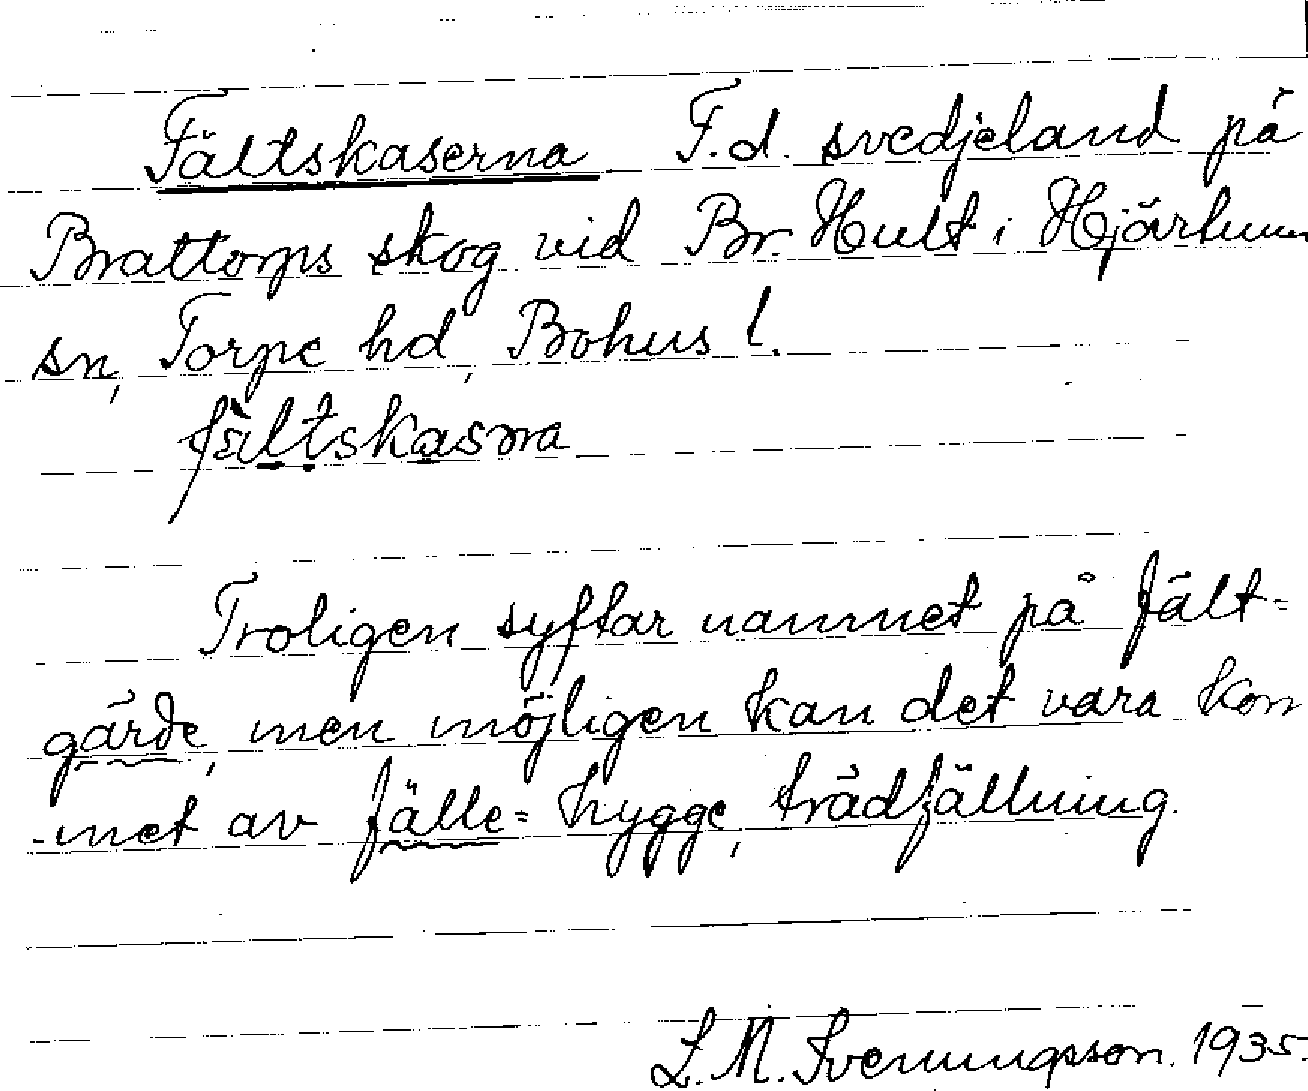 Fältskaserna F.d. svedjeland på
Brattorps skog vid Br. Hult i Hjärtum
sn, Torpe hd, Bohus l.
fältskasna
Troligen syftar namnet på fält=
gärde, men möjligen kan det vara kom
-met av fälle= hygge, trädfällning.
L. M. Svenungsson. 1935.